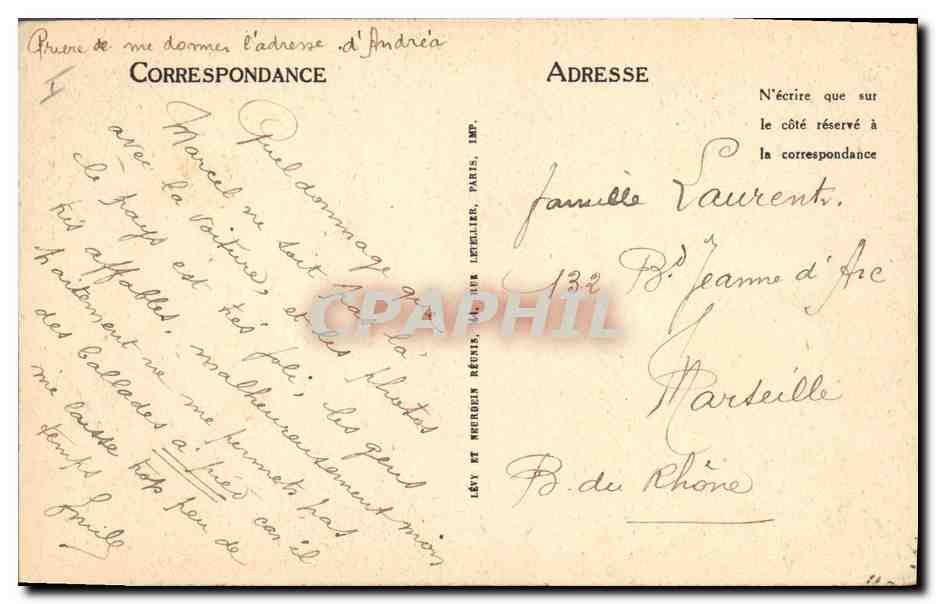 Prière de me donner l'adresse d'Andréa
CORRESPONDANCE
Quel dommage que
Marcel ne soit pas là
avec la voiture, et les photos
le pays est très joli, les gens
très affables, malheureusement mon
traitement ne me permets pas
des ballades à pied car il
me laisse trop peu de
temps
Emile
LÉVY ET NEURDEIN RÉUNIS, 44, RUE LETELLIER, PARIS, IMP.
ADRESSE
N'écrire que sur
le côté réservé à
la correspondance
famille Laurent.
132 Bd Jeanne d'Arc
Marseille
B. du Rhône
CPAPHIL